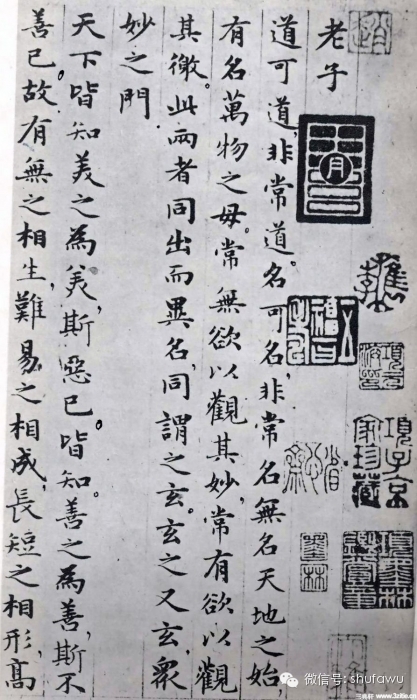 老子
道可道,非常道。名可名,非常名無名天地之始,
有名萬物之母。常無欲以觀其妙,常有欲以觀
其徼。此兩者同出而異名,同謂之玄。玄之又玄,衆
妙之門
天下皆知美之為美,斯惡已。皆知。善之為善,斯不
善已。故有無之相生,難易之相成,長短之相形,高
項子京家珍藏
墨林
微信号: shufawu